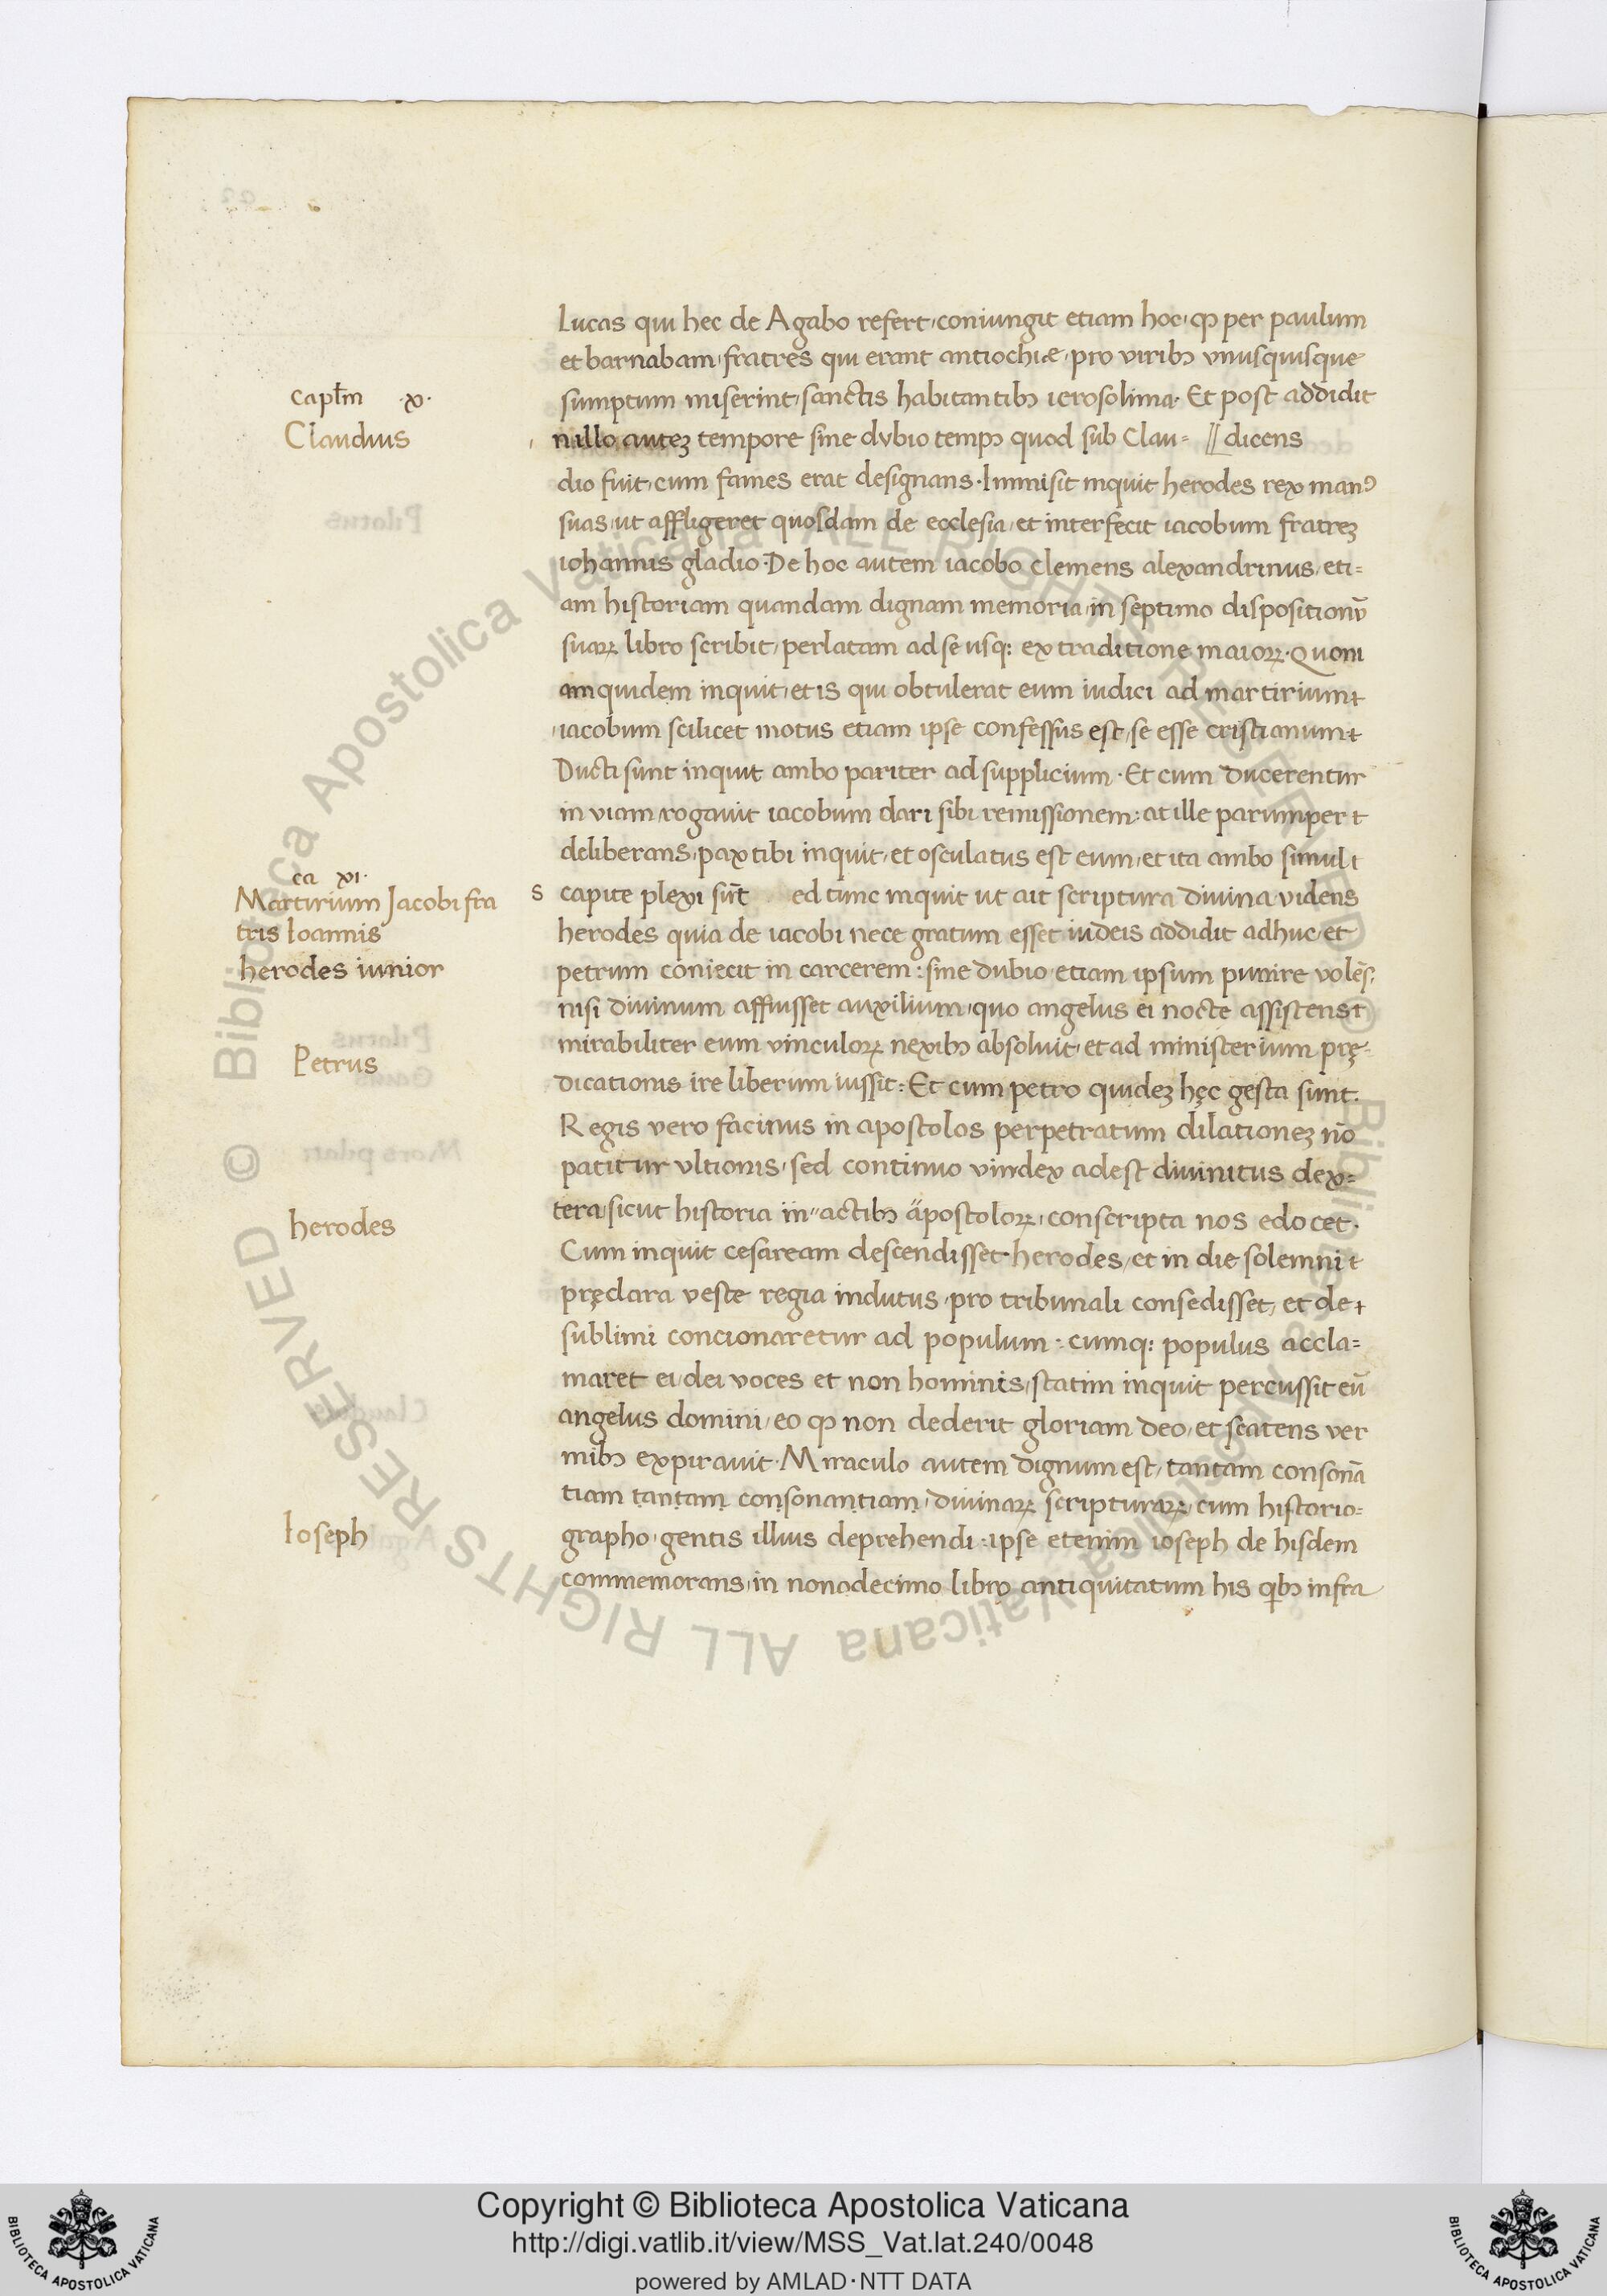 Lucas qui hec de Agabo refert, coniungit etiam hoc, ꝙ per paulum
et barnabam, fratres qui erant antiochiæ, pro viribꝫ vnusquisque
captm̄ ·x·
sumptum miserint, sanctis habitantibꝫ ierosolima· Et post addidit
Claudius
nillo auteꝫ tempore sine dvbio tempꝰ quod sub Clau= // dicens
dio fuit, cum fames erat designans. Inmisit inquit herodes rex manꝰ
suas, ut affligeret quosdam de ecclesia, et interfecit iacobum fratreꝫ
iohannis gladio. De hoc autem iacobo clemens alexandrinus, eti=
am historiam quandam dignam memoria, in septimo dispositionū
suaꝝ libro scribit, perlatam ad se usqꝫ ex traditione maioꝝ. Quoni
am quidem inquit, et is qui obtulerat eum iudici ad martirium
iacobum scilicet motus etiam ipse confessus est, se esse cristianum
Ducti sunt inquit ambo pariter ad supplicium. Et cum ducerentur
in viam, rogavit iacobum dari sibi remissionem: at ille parumper
deliberans, pax tibi inquit, et osculatus est eum, et ita ambo simul
ca xi·
Martirium Jacobi fra
s capite plexi sūt ed tunc inquit ut ait scriptura divina videns
tris Ioannis
herodes quia de iacobi nece gratum esset iudeis addidit adhuc, et
herodes iunior
petrum coniecit in carcerem: sine dubio, etiam ipsum punire volēs:
nisi divinum affuisset auxilium, quo angelus ei nocte assistens
mirabiliter eum vinculoꝝ nexibꝫ absoluit, et ad ministerium prę
Petrus
dicationis ire liberum iussit: Et cum petro quideꝫ hęc gesta sunt.
Regis vero facinus in apostolos perpetratum dilationeꝫ nō
patitur vltionis, sed continuo vindex adest divinitus dex=
tera, sicut historia in actibꝫ apostoloꝝ, conscripta nos edocet.
herodes
Cum inquit cesaream descendisset herodes, et in die solemni
pręclara veste regia indutus, pro tribunali consedisset, et de
sublimi concionaretur ad populum: cumqꝫ populus accla=
maret ei, dei voces et non hominis, statim inquit percussit eū
angelus domini, eo ꝙ non dederit gloriam deo, et scatens ver
mibꝫ expiravit. Miraculo autem dignum est, tantam consonā
tiam tantam consonantiam, divinaꝝ scripturaꝝ, cum historio=
Ioseph
grapho, gentis illius deprehendi: ipse etenim ioseph de hisdem
commemorans, in nonodecimo libro antiquitatum his qibꝫ infra
Copyright © Biblioteca Apostolica Vaticana
http://digi.vatlib.it/view/MSS_Vat.lat.240/0048
powered by AMLAD·NTT DATA
BIBLIOTECA APOSTOLICA VATICANA
BIBLIOTECA APOSTOLICA VATICANA
© Biblioteca Apostolica Vaticana ALL RIGHTS RESERVED
© Biblioteca Apostolica Vaticana ALL RIGHTS RESERVED